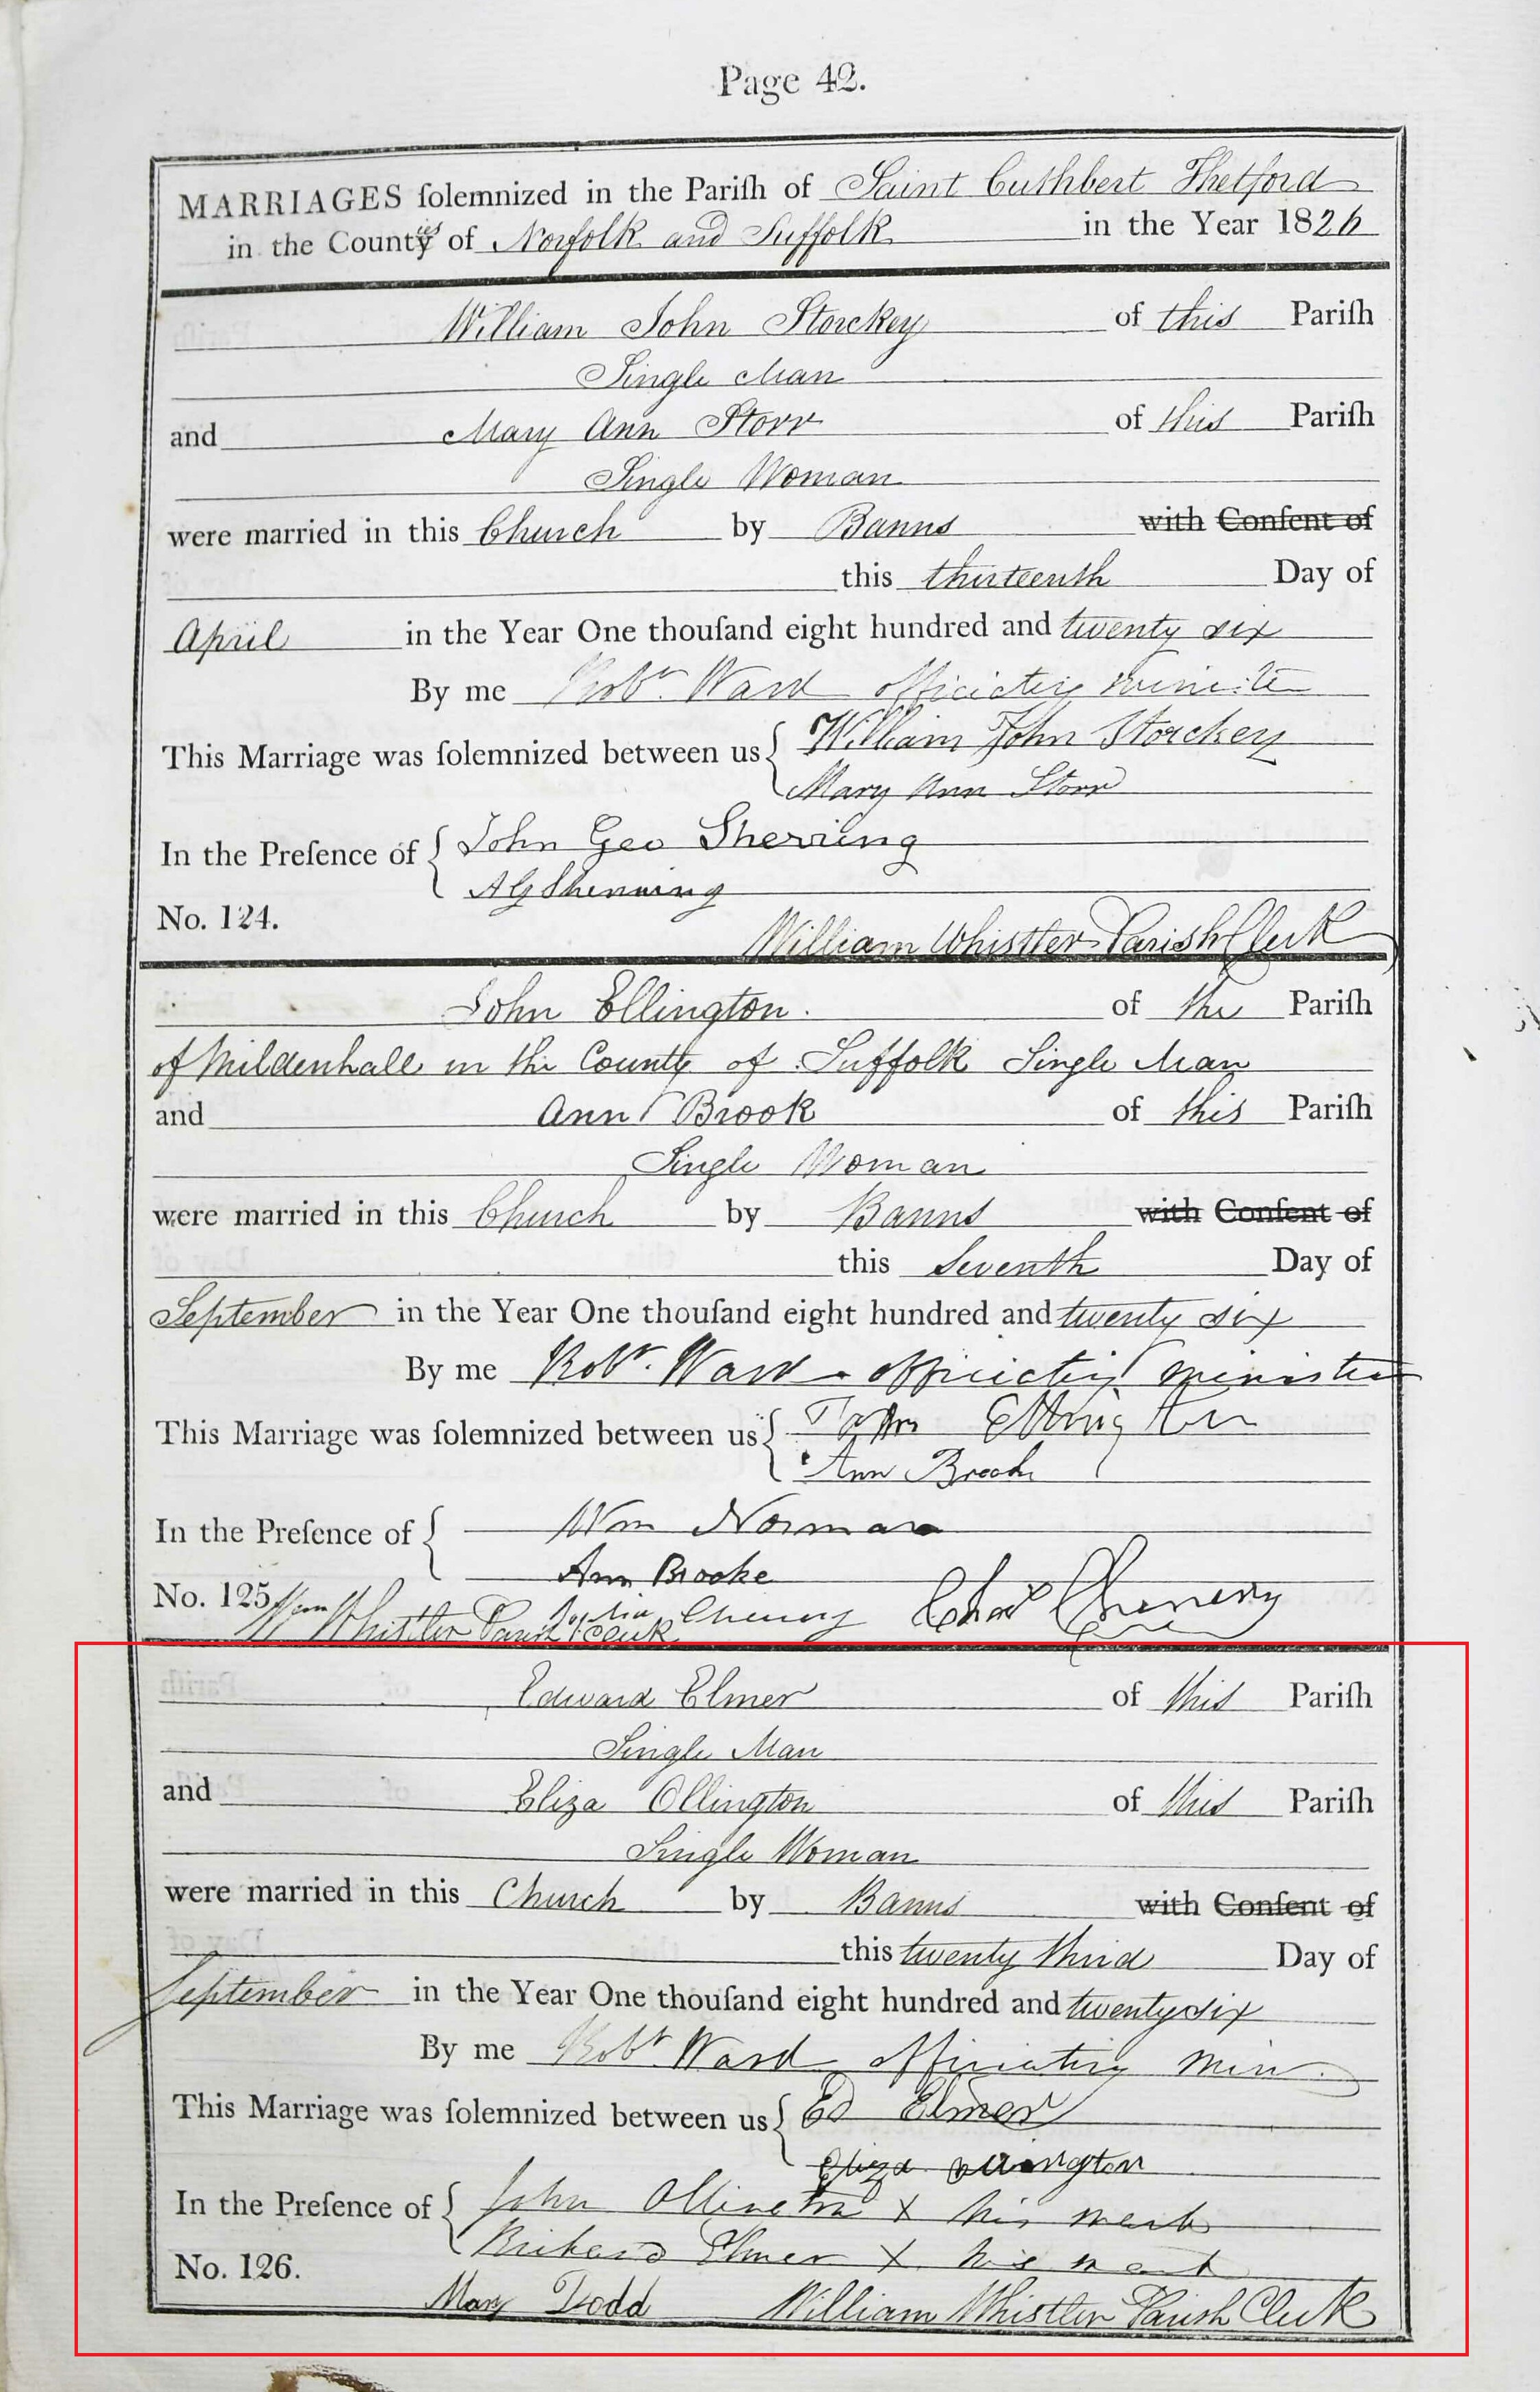 Page 42.
MARRIAGES ſolemnized in the Pariſh of Saint Cuthbert Thetford
in the Counties of Norfolk and Suffolk in the Year 1826
William John Storckey of this Pariſh
Single Man
and Mary Ann Storr of this Pariſh
Single Woman
were married in this Church by Banns with Conſent of
this thirteenth Day of
April in the Year One thouſand eight hundred and twenty six
By me Robt. Ward officiatig minister
This Marriage was ſolemnized between us { William John Storckey
Mary Ann Storr
In the Preſence of { John Geo Sherring
A G Sherring
No. 124.
William Whistler Parish Clerk
John Ellington. of the Pariſh
of Mildenhall in the County of Suffolk Single Man
and Ann Brook of this Pariſh
Single Woman
were married in this Church by Banns with Conſent of
this Seventh Day of
September in the Year One thouſand eight hundred and twenty six
By me Robt. Ward officiatig minister
This Marriage was ſolemnized between us { John Ellington
Ann Brook
In the Preſence of { Wm Norman
Ann Brooke
No. 125. Chenery Chas Chenery
Wm Whistler Parish Clerk
Edward Elmer of this Pariſh
Single Man
and Eliza Ollington of this Pariſh
Single Woman
were married in this Church by Banns with Conſent of
this twenty third Day of
September in the Year One thouſand eight hundred and twenty six
By me Robt Ward officiating Min.
This Marriage was ſolemnized between us { Ed Elmer
Eliza Ollington
In the Preſence of { John Ollington X his mark
Richard Elmer X his mark
No. 126.
Mary Dodd William Whistler Parish Clerk